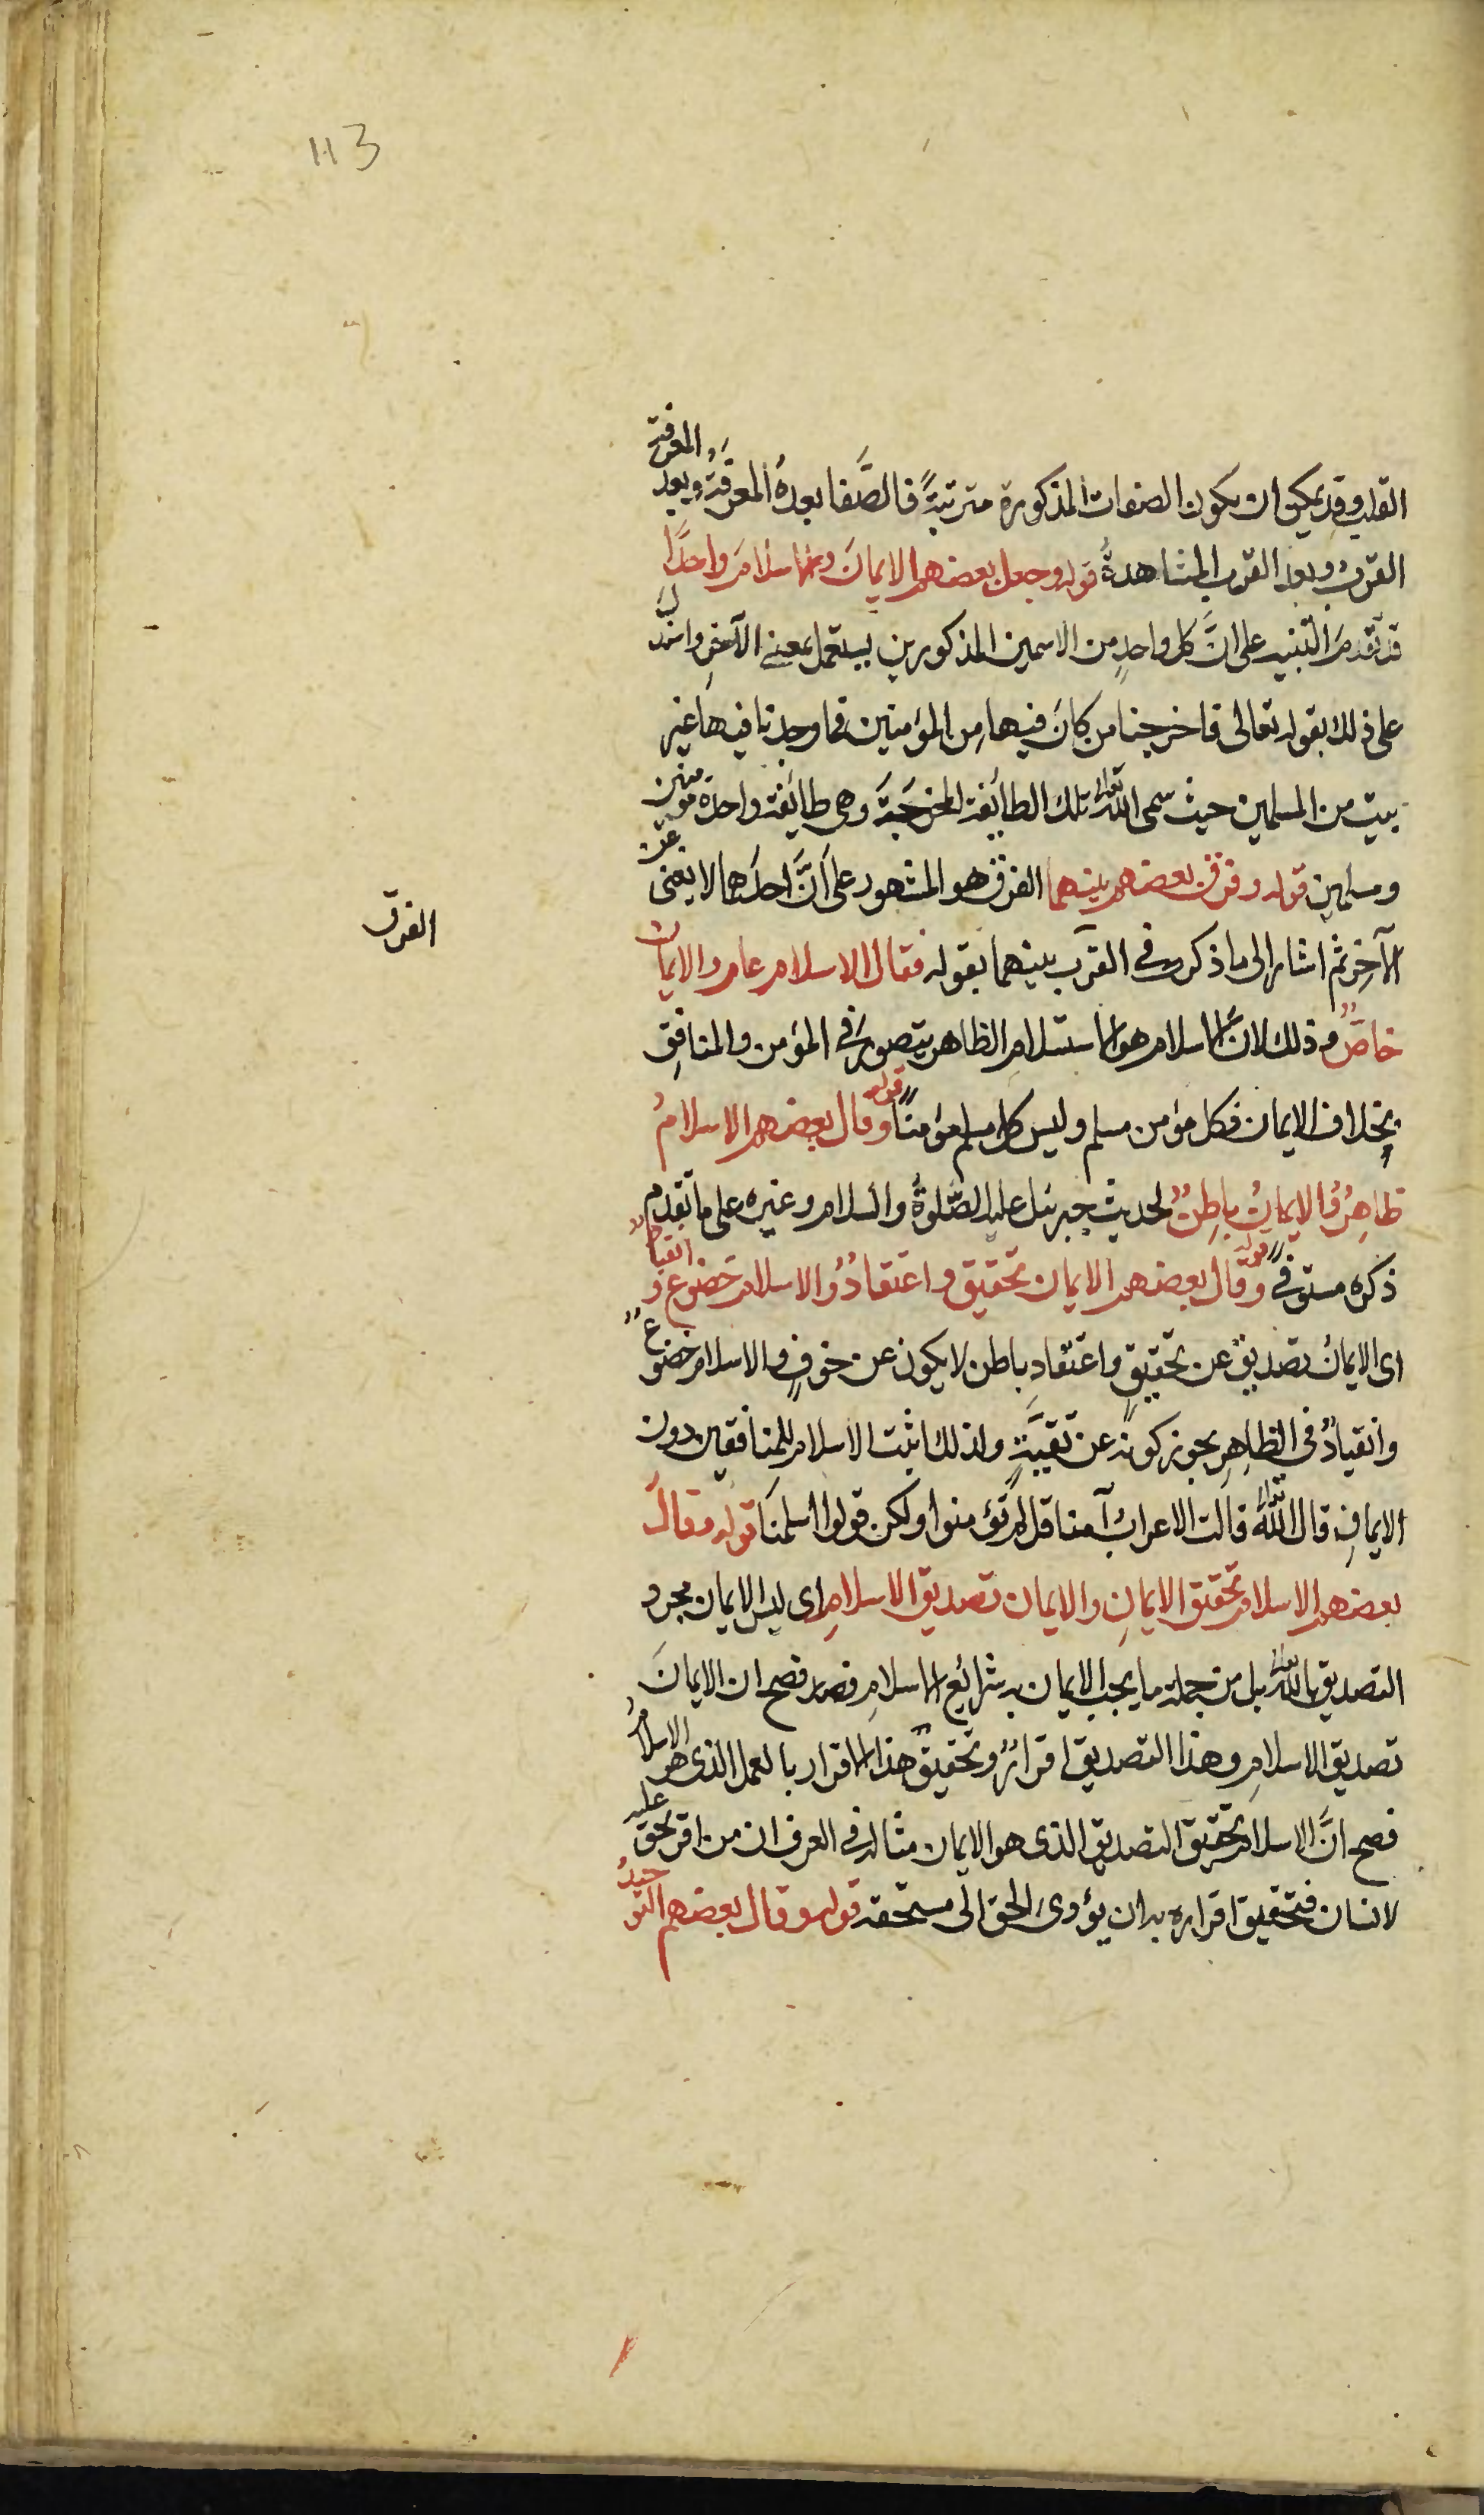 113
القلب وقد يمكن ان يكون الصفات المذكورة مترتبةً فالصَّفا بعدهُ المعرفَةُ وبعد المعرفة
القربُ وبعد القرب المشاهدةُ قوله وجعل بعضهم الايمانَ والاسلامَ واحدًا
قد تقدمَ التنبيه على انَّ كل واحدٍ من الاسمين المذكورين يستعمل بمعنى الآخرِ واستدلَّ
على ذلك بقوله تعالى فاخرجنا من كانَ فيها مِن المؤمنين فما وجدنا فيها غير
بيت من المسلمين حيث سمى الله تعالى تلك الطائفة المخرَجَةَ وهى طائفة واحدة مؤمنين
ومسلمين قوله وفرق بعضهم بينهما الفرق هو المشهور على اَنَّ احدَهما لا يغنى عن
الآخرِ ثم اشار الى ما ذكر فى القرب بينهما بقوله فقال الاسلام عام والايمان
الفرق
خاصٌّ وذلك لانَّ الاسلام هو الاستسلامِ الظاهر يتصورُ فى المؤمن والمنافِقِ
بخلاف الايمان فكل مؤمن مسلم وليس كل مسلم مؤمنًا قوله وقال بعضهم الاسلامُ
ظاهِرٌ والايمانُ باطِنٌ لحديث جبرئيل عليه الصَّلوةُ والسلام وغيره على ما تقدم
ذكره مستوفًى قوله وقال بعضهم الايمان تحقيق واعتقادٌ والاسلام خضوع و انقياد
اى الايمانُ تصديقٌ عن تحقيقٍ واعتقادٍ باطن لا يكون عن خوفٍ والاسلام خضوع
وانقيادٌ فى الظاهِرِ يجوز كونه عن تقيَّةٍ ولذلك اثبت الاسلام للمنافقين دون
الايمانِ قال الله تعالى قالت الاعرابُ آمنا قل لم تؤمنوا ولكن قولوا اسلمنَا قوله وقالَ
بعضهم الاسلام تحقيق الايمانِ والايمان تصديق الاسلامِ اى ليس الايمان مجرد
التصديق بالله تعالى بل من جملة ما يجب الايمان به شرائع الاسلامِ فصح ان الايمانَ
تصديق الاسلامِ وهذا التصديق اقرارٌ وتحقيقُ هذا الاقرار بالعمل الذى هو الاسلامُ
فصح انَّ الاسلام تحقيق التصديق الذى هو الايمان مثاله فى العرف ان من اقر بحق عليه
لانسان فتحقيق اقراره به ان يؤدى الحق الى مستحقه قوله وقال بعضهم التوحيدُ